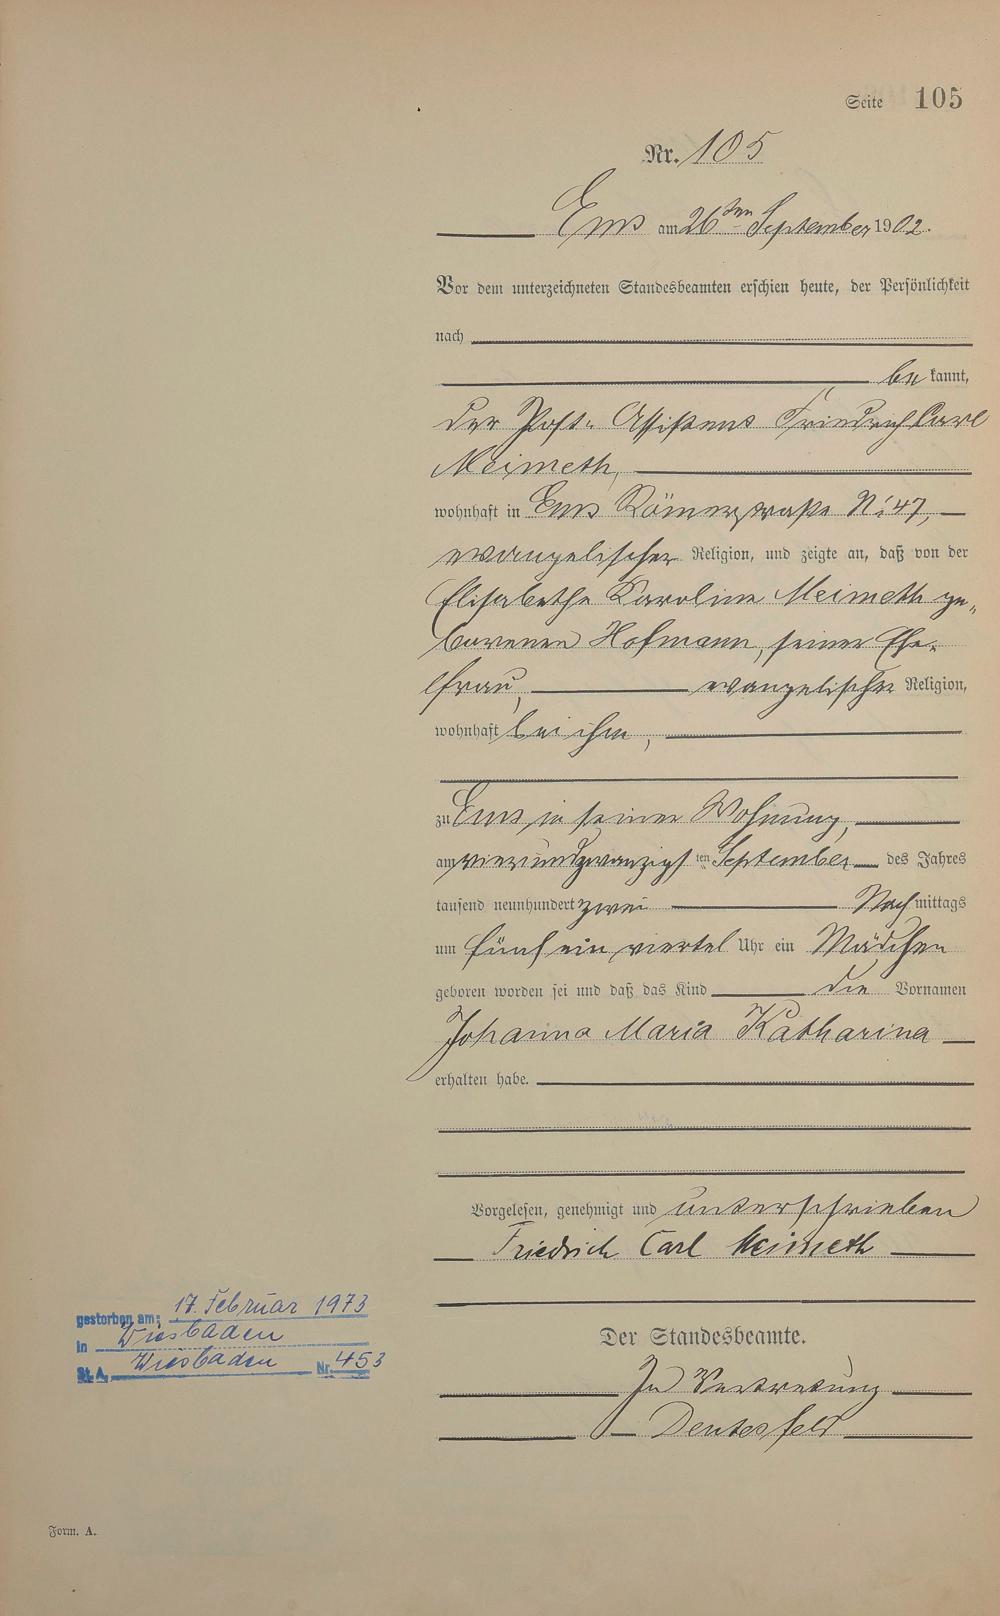 Seite 105
Nr. 105
Ems am 26ten September 1902.
Vor dem unterzeichneten Standesbeamten erschien heute, der Persönlichkeit
nach
be kannt,
der Post-Assistent Friedrich Carl
Meimeth,
wohnhaft in Ems Römerstraße No 47,
evangelischer Religion, und zeigte an, daß von der
Elisabethe Karoline Meimeth ge-
borenen Hofmann, seiner Ehe-
frau, evangelischer Religion,
wohnhaft bei ihm,
zu Ems in seiner Wohnung,
am vierundzwanzigsten September des Jahres
tausend neunhundert zwei Nachmittags
um fünf ein viertel Uhr ein Mädchen
geboren worden sei und daß das Kind die Vornamen
Johanna Maria Katharina
erhalten habe.
Vorgelesen, genehmigt und unterschrieben
Friedrich Carl Meimeth
Der Standesbeamte.
In Vertretung
gestorben am: 17. Februar 1973
in Wiesbaden
St.A. Wiesbaden Nr. 453
Form. A.